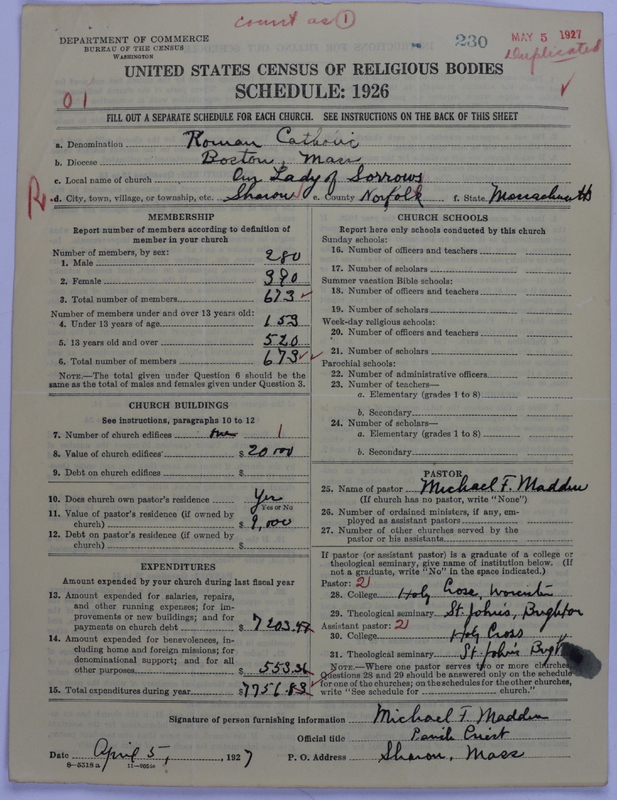 count as 1
DEPARTMENT OF COMMERCE
BUREAU OF THE CENSUS
WASHINGTON
230
MAY 5 1927
Duplicated
UNITED STATES CENSUS OF RELIGIOUS BODIES
SCHEDULE: 1926
01
FILL OUT A SEPARATE SCHEDULE FOR EACH CHURCH. SEE INSTRUCTIONS ON THE BACK OF THIS SHEET
a. Denomination Roman Catholic
b. Diocese Boston, Mass
c. Local name of church Our Lady of Sorrows
R
d. City, town, village, or township, etc. Sharon e. County Norfolk f. State Massachusetts
MEMBERSHIP
Report number of members according to definition of
member in your church
Number of members, by sex:
1. Male 280
2. Female 390
3. Total number of members 673
Number of members under and over 13 years old:
4. Under 13 years of age 153
5. 13 years old and over 520
6. Total number of members 673
NOTE.—The total given under Question 6 should be
same as the total of males and females given under Question 3.
CHURCH BUILDINGS
See instructions, paragraphs 10 to 12
7. Number of church edifices one 1
8. Value of church edifices $ 20000
9. Debt on church edifices $
10. Does church own pastor's residence Yes
Yes or No
11. Value of pastor's residence (if owned by
church) $ 9,000
12. Debt on pastor's residence (if owned by
church) $
EXPENDITURES
Amount expended by your church during last fiscal year
13. Amount expended for salaries, repairs,
and other running expenses; for im-
provements or new buildings; and for
payments on church debt $ 7203.47
14. Amount expended for benevolences, in-
cluding home and foreign missions; for
denominational support; and for all
other purposes $ 553.36
15. Total expenditures during year $ 7756.83
CHURCH SCHOOLS
Report here only schools conducted by this church
Sunday schools:
16. Number of officers and teachers
17. Number of scholars
Summer vacation Bible schools:
18. Number of officers and teachers
19. Number of scholars
Week-day religious schools:
20. Number of officers and teachers
21. Number of scholars
Parochial schools:
22. Number of administrative officers
23. Number of teachers—
a. Elementary (grades 1 to 8)
b. Secondary
24. Number of scholars—
a. Elementary (grades 1 to 8)
b. Secondary
PASTOR
25. Name of pastor Michael F. Madden
(If church has no pastor, write "None")
26. Number of ordained ministers, if any, em-
ployed as assistant pastors
27. Number of other churches served by the
pastor or his assistants
If pastor (or assistant pastor) is a graduate of a college or
theological seminary, give name of institution below. (If
not a graduate, write "No" in the space indicated.)
Pastor: 21
28. College Holy Cross, Worcester
29. Theological seminary St. John's, Brighton
Assistant pastor: 21
30. College Holy Cross
31. Theological seminary St. John's
NOTE.—Where one pastor serves two or more churches,
Questions 28 and 29 should be answered only on the schedule
for one of the churches; on the schedules for the other churches,
write "See schedule for church."
Signature of person furnishing information Michael F. Madden
Official title Parish Priest
Date April 5, 1927 P. O. Address Sharon, Mass
8—5318a